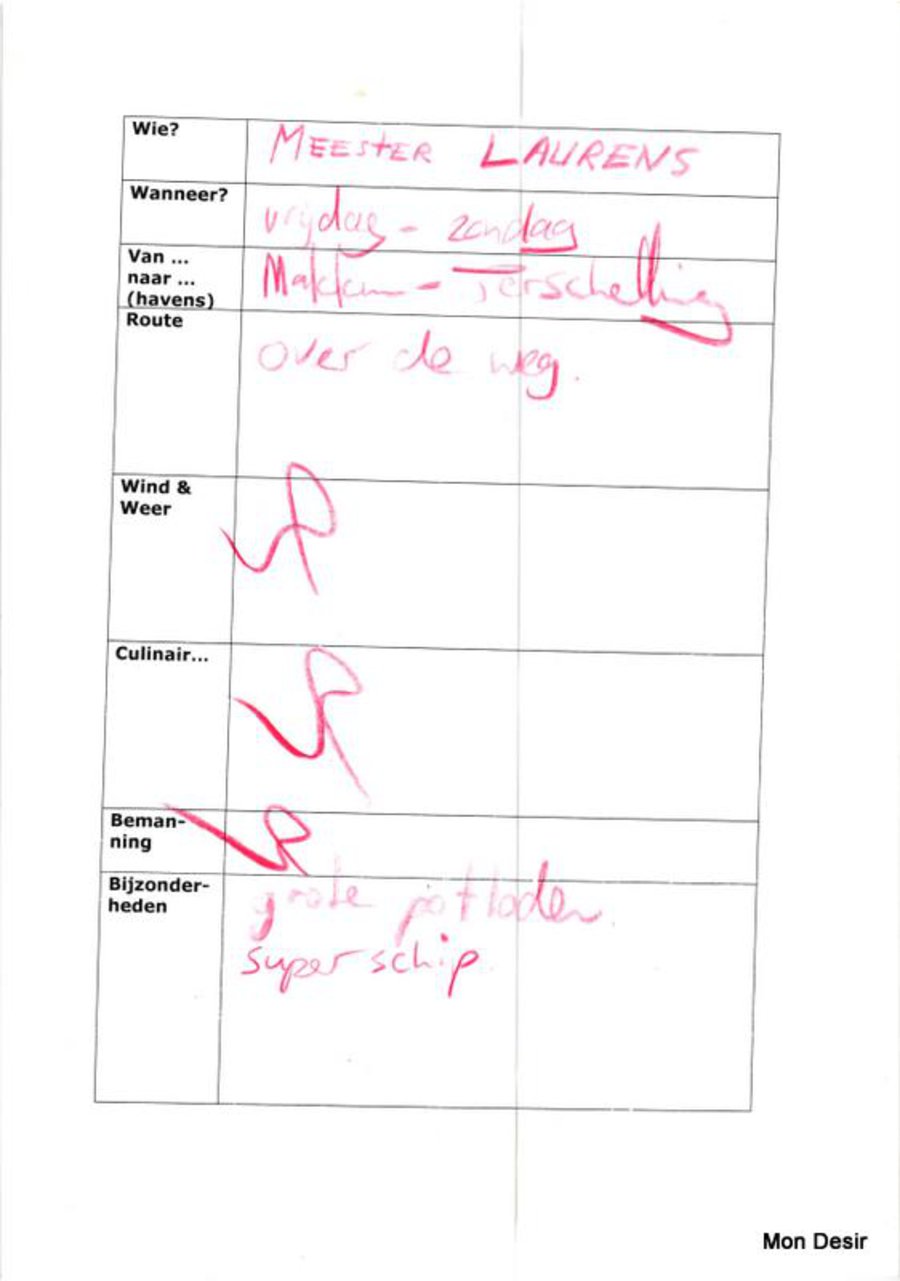 Wie? MEESTER LAURENS
Wanneer? vrijdag - zondag
Van ...
naar ... Makkum - Terschelling
(havens)
Route
over de weg.
Wind &
Weer
Culinair...
Beman-
ning
Bijzonder-
heden grote potloden.
super schip
Mon Desir